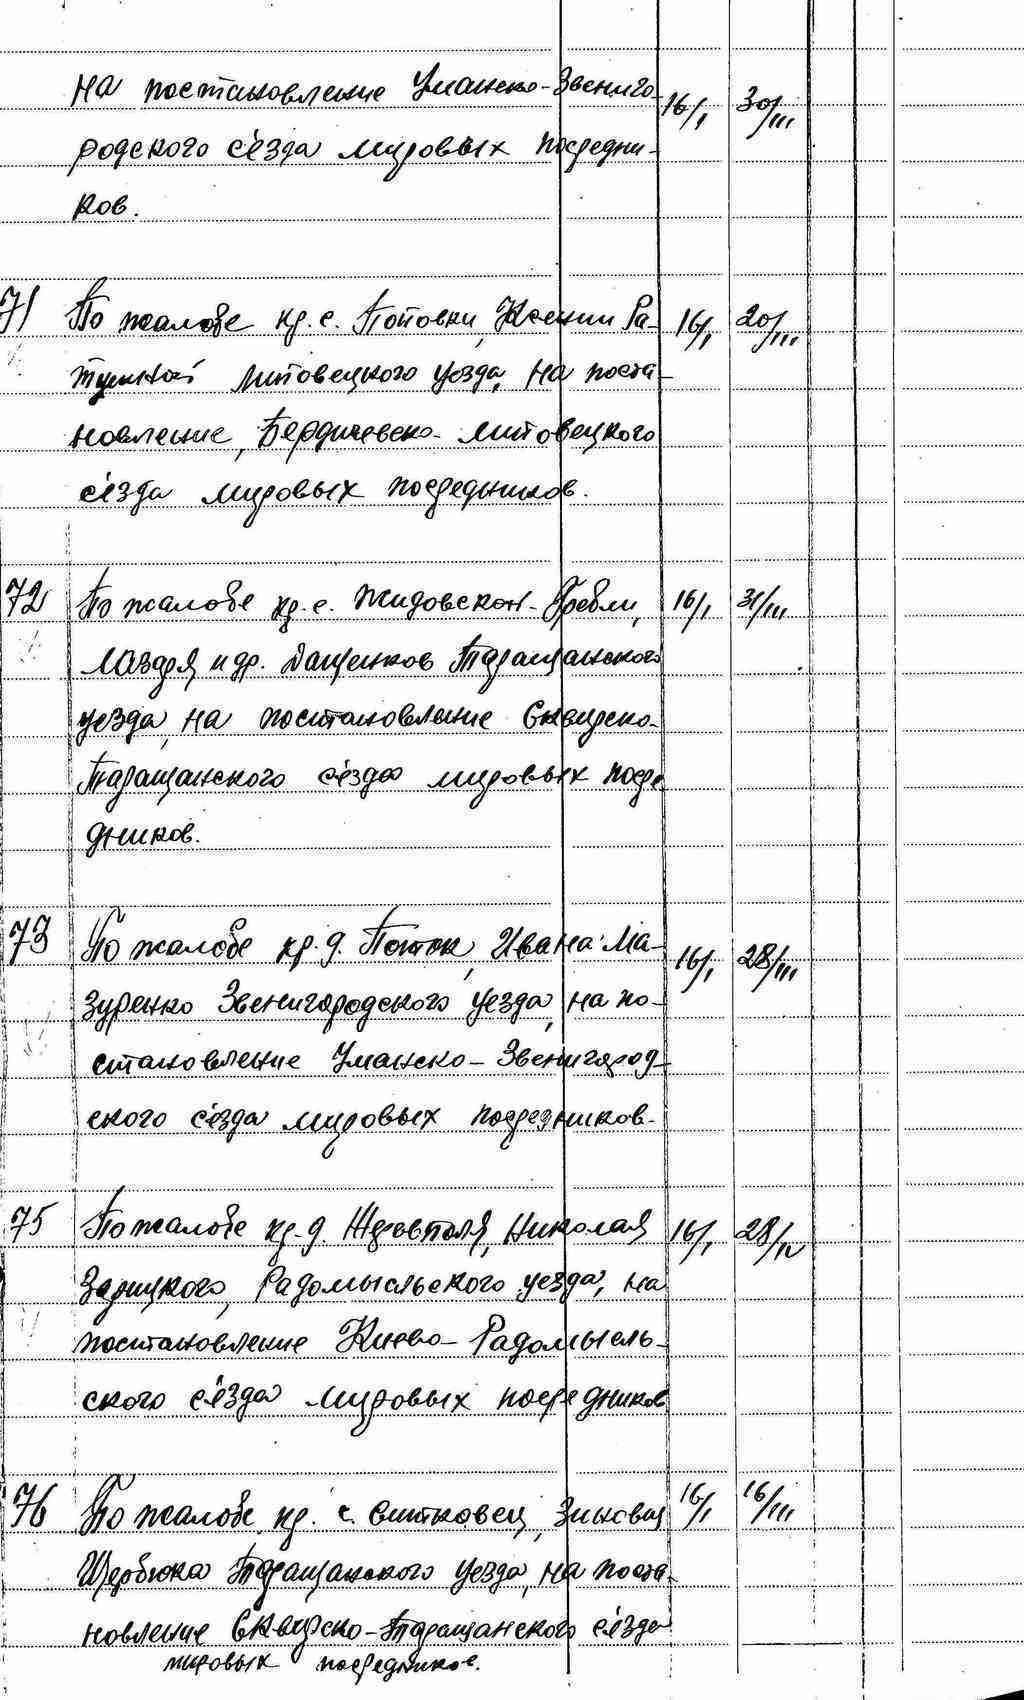 на постановление Уманско-Звениго- 16/I 30/III
родского с'езда мировых посредни-
ков.
71 По жалобе кр. с. Поповки, Ксении Ра- 16/I 20/III
Липовецкого уезда, на поста-
новление, Бердичевско-Липовецкого
с'езда мировых посредников.
72 По жалобе кр. с. Жидовской-Гребли, 16/I 31/III
Лазаря и др. Дащенков Таращанского
уезда, на постановление Сквирско-
Таращанского с'езда мировых посре
дников.
73 По жалобе кр. д. Поток, Ивана Ма- 16/I 28/III
зуренко Звенигородского уезда, на по-
становление Уманско-Звенигород-
ского с'езда мировых посредников.
75 По жалобе кр. д. Николая 16/I 28/IV
Зарицкого, Радомысльского уезда, на
постановление Киево-Радомысль-
ского с'езда мировых посредников
76 По жалобе кр. с. Ситковец, Зиновия 16/I 16/III
Щербюка Таращанского уезда, на поста-
новление Сквирско-Таращанского с'езда
мировых посредников.